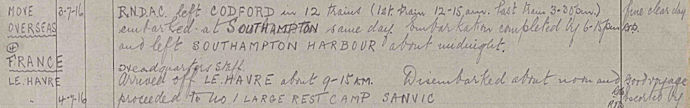 MOVE 3-7-16 R.N.D.A.C. left CODFORD in 12 trains (1st train 12-15 a.m. last train 3-35 p.m.) fine clear day
OVERSEAS embarked at SOUTHAMPTON same day. Embarkation completed by 6-15 p.m.
+ and left SOUTHAMPTON HARBOUR about midnight.
FRANCE Headquarters Staff
LE. HAVRE Arrived off LE. HAVRE about 9-15 A.M. Disembarked about noon and Good voyage
4-7-16 proceeded to No 1 LARGE REST CAMP SANVIC escorted by